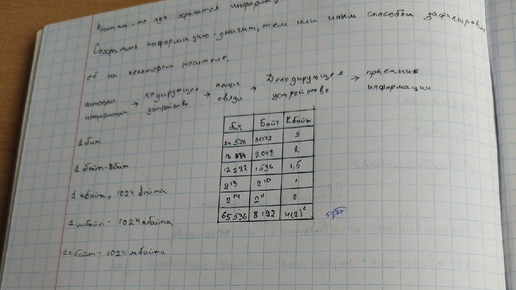 - то где хранится информ
Сохранить информацию - значит, тем или иным способом зафиксировать
её на некотором носителе.
источник информации → кодирующее устройство → канал связи → Декодирующее устройство → приёмник информации
1 бит
1 байт - 8бит
1 кбайт, 1024 байта
1 мбайт - 1024 кбайта
1гбайт - 1024 мбайта
бит Байт Кбайт
24 576 3072 3
2048 2
1536 1,5
2¹³ 2¹⁰ 1
2¹⁴ 2¹¹ 2
65 536 8192